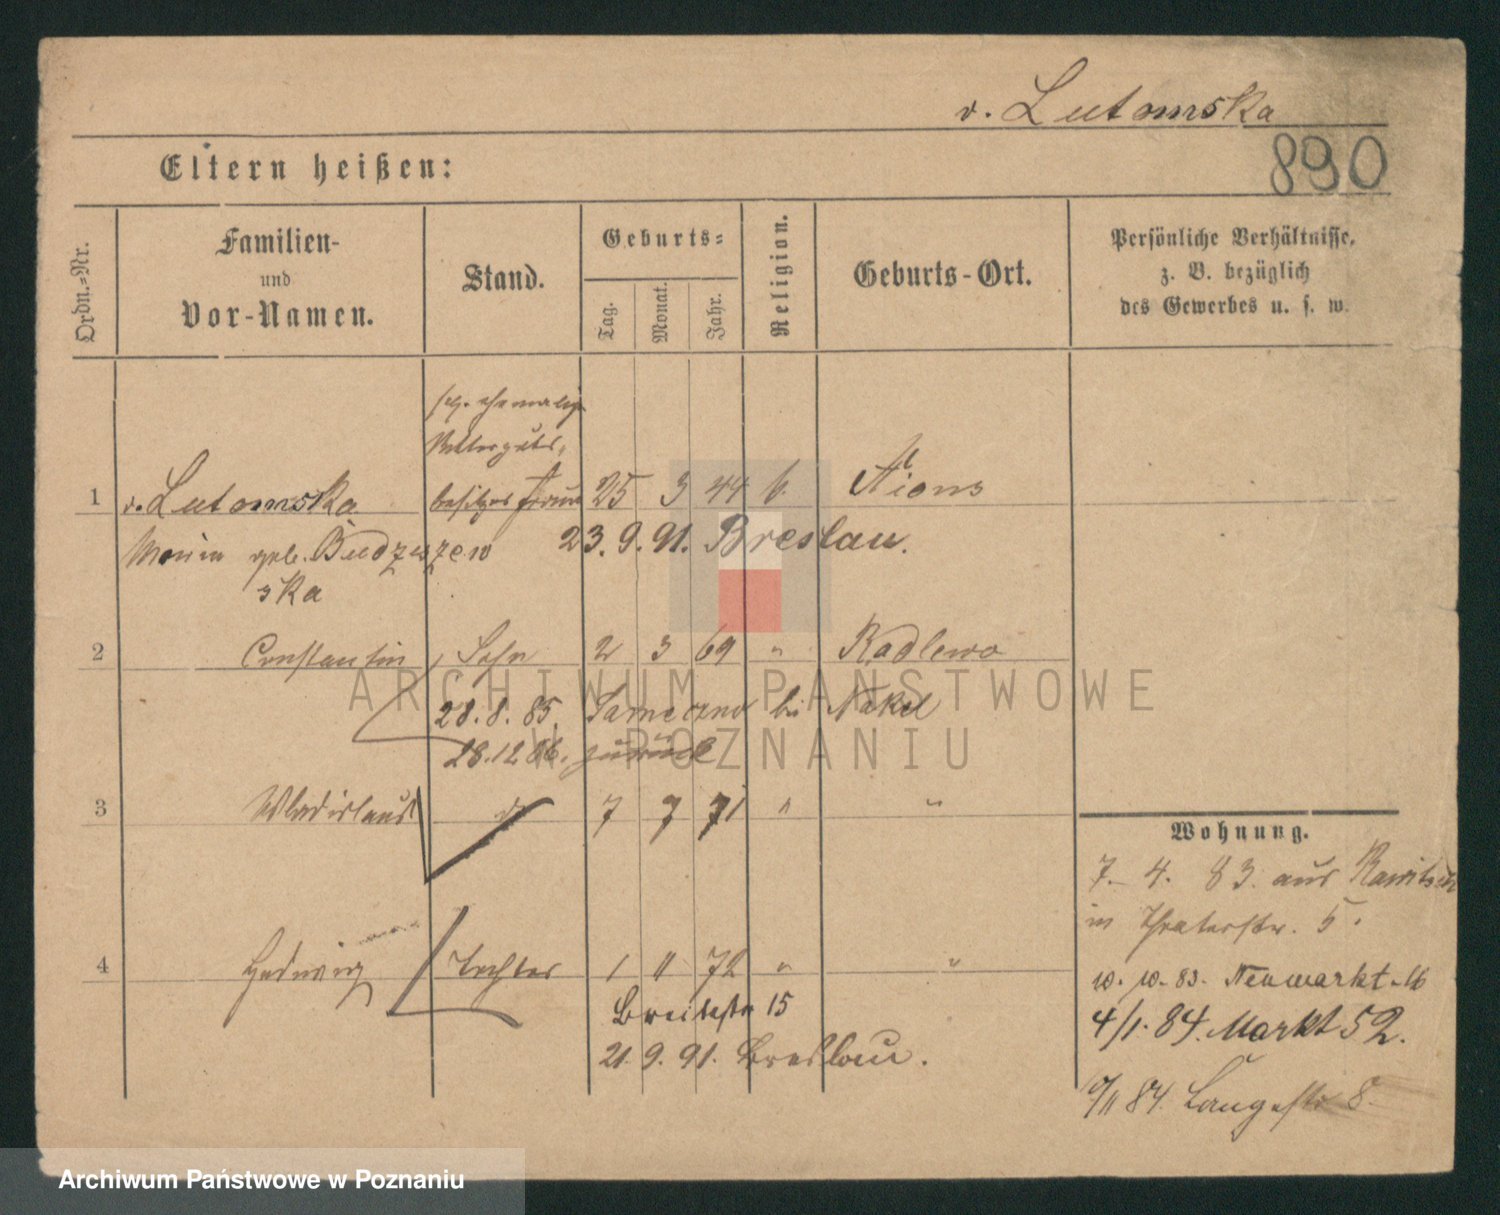 v. Lutomska
890
Eltern heißen:
Ordn.-Nr.
Familien-
und
Vor-Namen.
Stand.
Geburts-
Tag.
Monat.
Jahr.
Religion.
Geburts-Ort.
Persönliche Verhältnisse,
z. B. bezüglich
des Gewerbes u. s. w.
ehemalig
Ritterguts-
1 v. Lutomska besitzer Frau 25 3 44 k. Xions
Maria geb. Budzuszew 23. 9. 91. Breslau.
ska
2 Constantin, Sohn 2 3 69 " Radlewo
28. 8. 85. bei Nakel
28. 12. 86. zurück
3 Wladislaus 7 7 71 " "
4 Hedwig Tochter 1 11 72 " "
Breitestr 15
21. 9. 91. Breslau.
Wohnung.
7. 4. 83. aus Rawitsch
in Theaterstr. 5.
10. 10. 83. Neumarkt 16
4/1. 84. Markt 52.
84. Langestr 8.
ARCHIWUM PAŃSTWOWE
W POZNANIU
Archiwum Państwowe w Poznaniu